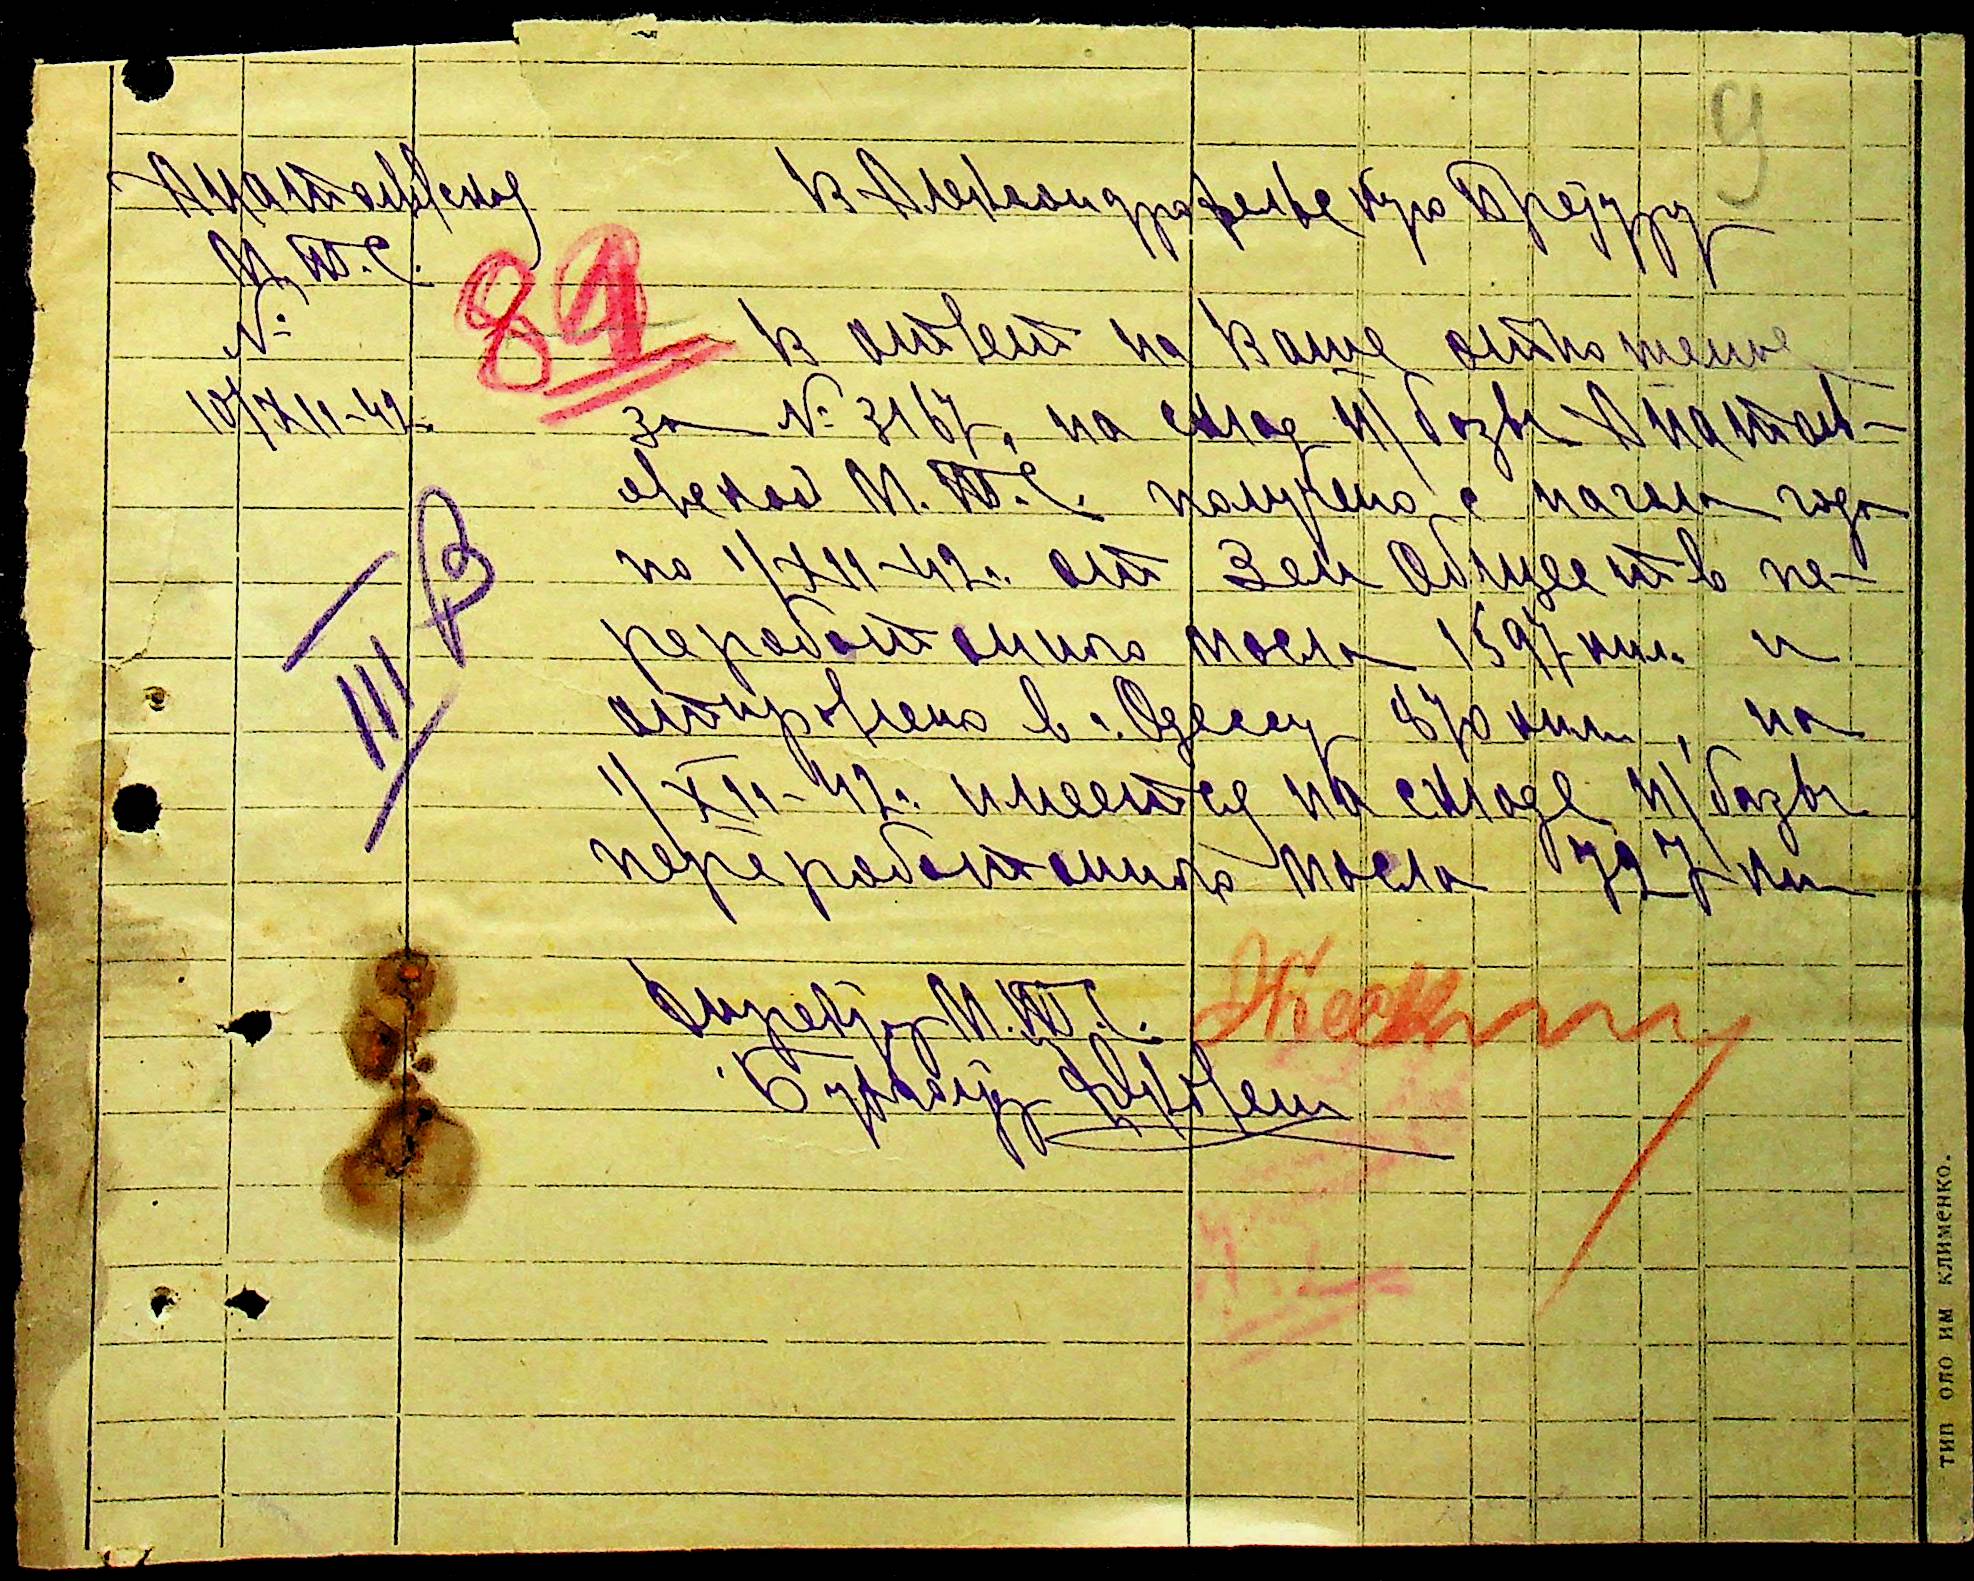 9
Анатольевская
В Александрофельскую Претуру
М.Т.С.
№
89
10/XII-42г.
В ответ на Ваше отношение
за № 3167, на склад н/базы Анатоль-
евской М.Т.С. получено с начала года
по 1/XII-42г. от Зем Обществ пе-
реработанного масла 1597 кил. и
отправлено в г. Одессу 870 кил., на
1/XII-42г. имеется на складе н/базы
переработанного масла 727 кил
III
Директор М.Т.С.
Бухгалтер
тип оло им клименко.